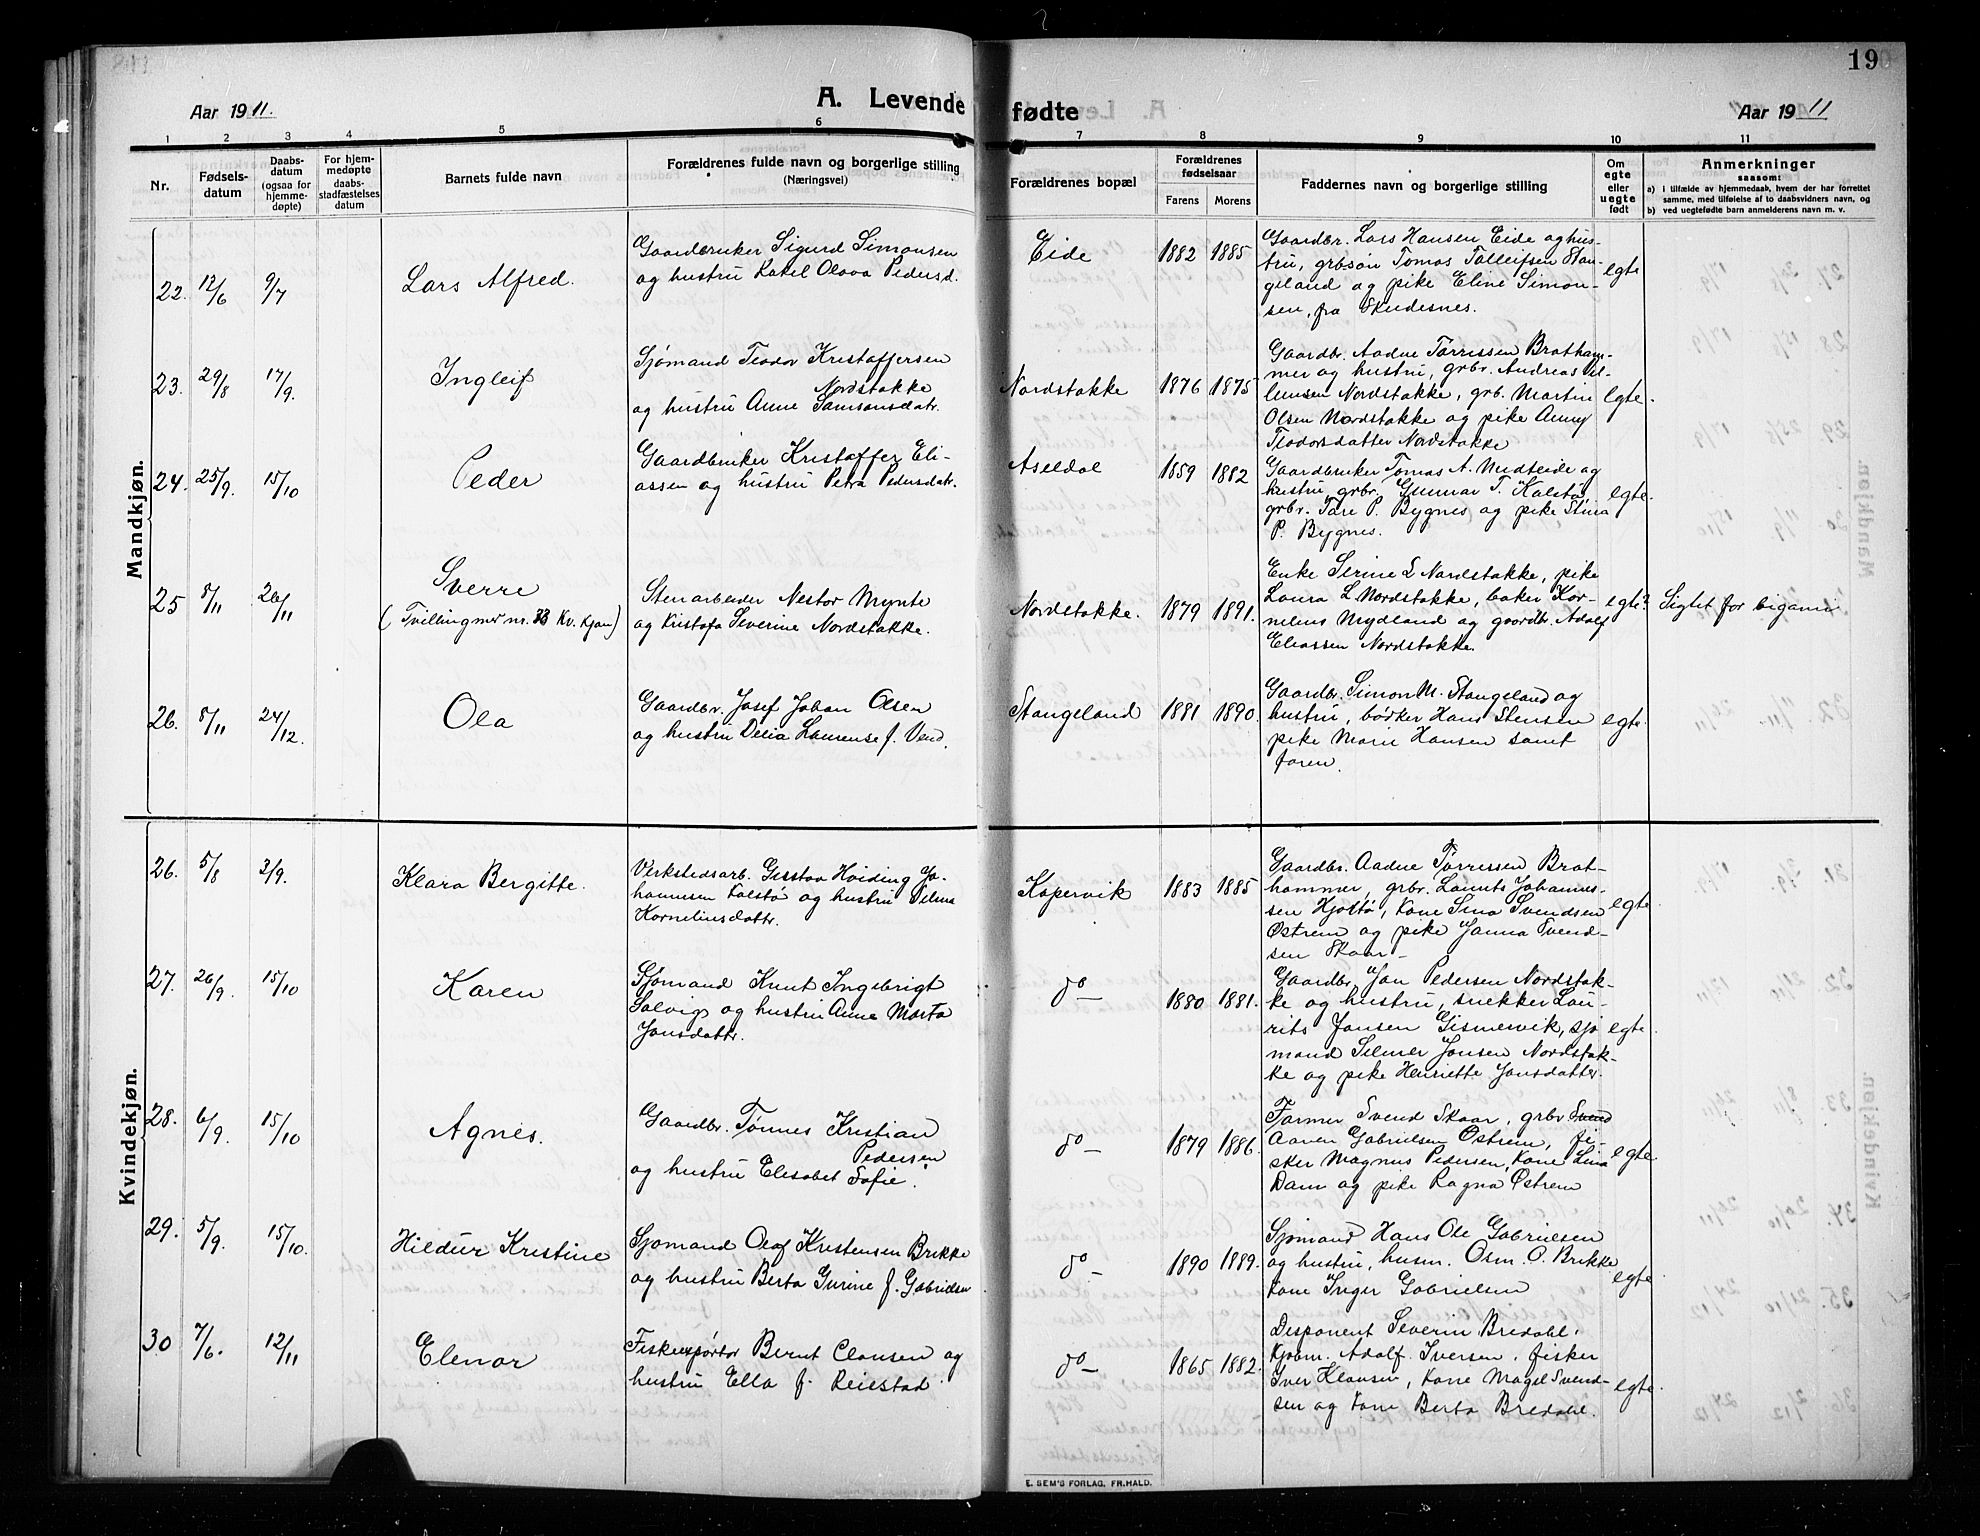 19
Aar 1911.
A. Levende fødte
Aar 1911
1 2 3 4 5 6 7 8 9 10 11
Nr.
Fødsels-
datum
Daabs-
datum
(ogsaa for
hjemme-
døpte)
For hjem-
medøpte
daabs-
stadfæstelses
datum
Barnets fulde navn
Forældrenes fulde navn og borgerlige stilling
(Næringsvel)
Forældrenes bopæl
Forældrenes
fødselsaar
Farens
Morens
Faddernes navn og borgerlige stilling
Om
egte
eller
uegte
født
Anmerkninger
saasom:
a) i tilfælde av hjemmedaab, hvem der har forrettet
samme, med tilføielse af to daabsvidners navn, og
b) ved uegtefødte barn anmelderens navn m. v.
Mandkjøn.
22. 12/6 9/7
Lars Alfred.
Gaardbruker Sigurd Simonsen
og hustru Rakel Olava Pedersd.
Eide 1882 1885
Gaardbr. Lars Hansen Eide og hus-
tru, grbsøn Tomas Tolleifsen Stan-
geland og pike Eline Simon-
sen, fra Skudesnes.
egte
23. 29/8 17/9.
Ingleif
Sjømand Teodor Kristoffersen
Nordstokke
og hustru Anne Samsonsdatr.
Nordstokke 1876 1875
Gaardbr. Aadne Tørressen Brotham-
mer og hustru, grbr. Andreas El-
lingsen Nordstokke, grb. Martin
Olsen Nordstokke og pike Anny
Teodorsdatter Nordstokke
egte.
24. 25/9. 15/10
Peder
Gaardbruker Kristoffer Eli-
assen og hustru Petra Pedersdatr.
Aseldal 1859 1882
Gaardbruker Tomas A. Midteide og
hustru, grbr. Gunnar T. Kalstø,
grbr. Tore P. Bygnes og pike Stina
P. Bygnes.
egte.
25 8/11 26/11
Sverre
(Tvilling m nr. 33 Kv. kjøn)
Stenarbeider Nestor Mynte
og Kristofa Severine Nordstokke.
Nordstokke. 1879 1891.
Enke Serine L Nordstokke, pike
Laura L Nordstokke, baker Kor-
nelius Mydland og gaardbr. Adolf
Eliassen Nordstokke.
egte?
Sigtet for bigami
26. 8/11 24/12.
Ola
Gaardbr. Josef Johan Olsen
og hustru Delia Laurense f. Vend.
Stangeland 1881 1890.
Gaardbr. Simon M. Stangeland og
hustru, bødker Hans Stensen
pike Marie Hansen samt
faren.
egte.
Kvindekjøn.
26. 5/8 3/9.
Klara Bergitte.
Verkstedsarb. Gustav Høiding Jo-
hannesen Kalstø og hustru Pelma
Korneliusdattr.
Kopervik 1883 1885
Gaardbr. Aadne Tørressen Brot-
hammer, grbr. Laurits Johannes-
sen Hjoltø, kone Sina Svendsen
Østrem og pike Janna Svend-
sen Skaar-
egte
27. 26/9. 15/10
Karen
Sjømand Knut Ingebrigt
Solvig og hustru Anne Marta
Jonsdattr.
do — 1880 1881.
Gaardbr. Jon Pedersen Nordstok-
ke og hustru, snekker Lau-
rits Jansen Gismervik, sjø
mand Selmer Jonsen Nordstok-
ke og pike Henriette Jonsdatter.
egte.
28. 6/9. 15/10
Agnes.
Gaardbr. Tønnes Kristian
Pedersen
og hustru Elisabet Sofie.
do — 1879 1886.
Farmer Svend Skaar, grbr Svend
Aanen Gabrielsen Østrem, fi-
sker Magnus Pedersen, kone Lina
Dam og pike Ragna Østrem
egte
29. 5/9. 15/10.
Hildur Kristine
Sjømand Olaf Kristensen Brekke
og hustru Berta Gurine f. Gabrielsen
do — 1890 1889.
Sjømand Hans Ole Gabrielsen
og hustru, husm. Osm. O. Brekke
kone Inger Gabrielsen
egte.
30 7/6. 12/11
Elenor
Fiskeexportør Bernt Clausen og
hustru Ella f. Reiestad
do — 1865 1882.
Disponent Severin Bredahl,
Kjøbm. Adolf Iversen, fisker
Iver Klausen, kone Magel Svend-
sen og kone Berta Bredahl.
egte.
E. SEM'S FORLAG, FR.HALD.